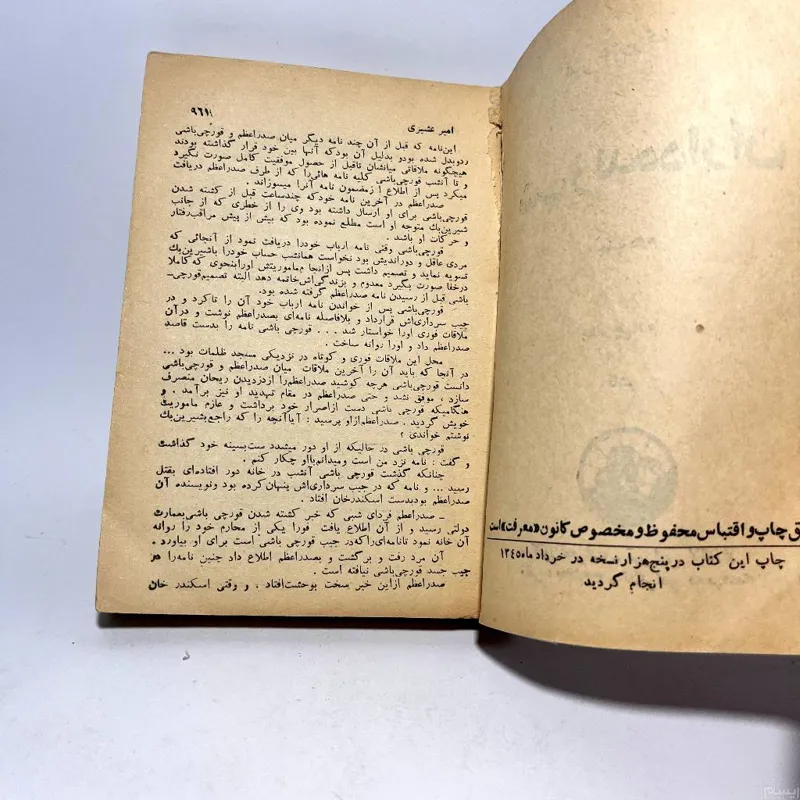 امیر عشیری
۹۶۱
این‌نامه که قبل از آن چند نامه دیگر میان صدراعظم و قورچی‌باشی
ردوبدل شده بودو بدلیل آن بودکه آنها بین خود قرار گذاشته بودند
هیچگونه ملاقاتی میانشان تاقبل از حصول موفقیت کامل صورت نگیرد
و تا آنشب قورچی‌باشی کلیه نامه هائی‌را که از طرف صدراعظم دریافت
میکرد پس از اطلاع از مضمون نامه آنرا میسوزاند .
صدراعظم در آخرین نامه خودکه چندساعت قبل از کشته شدن
قورچی‌باشی برای او ارسال داشته بود وی را از خطری که از جانب
شیرین‌بك متوجه او است مطلع نموده بود که بیش از پیش مراقب‌رفتار
و حرکات او باشد .
قورچی‌باشی وقتی نامه ارباب خودرا دریافت نمود از آنجائی که
مردی عاقل و دوراندیش بود نخواست همانشب حساب خودرا باشیرین‌بك
تسویه نماید و تصمیم داشت پس ازانجام ماموریتش اورابنحوی که‌کاملا
درخفا صورت بگیرد معدوم و بزندگی‌اش‌خاتمه دهد البته تصمیم‌قورچی‌ـ
باشی قبل از رسیدن نامه صدراعظم گرفته شده بود.
قورچی‌باشی پس از خواندن نامه ارباب خود آن را تاکرد و در
جیب سرداری‌اش قرارداد و بلافاصله نامه‌ای بصدراعظم نوشت و درآن
ملاقات فوری اورا خواستار شد . . . . قورچی باشی نامه را بدست قاصد
صدراعظم داد و اورا روانه ساخت .
محل این ملاقات فوری و کوتاه در نزدیکی مسجد ظلمات بود ...
در آنجا که باید آن را آخرین ملاقات میان صدراعظم و قورچی‌باشی
دانست قورچی‌باشی هرچه کوشید صدراعظم‌را ازدزدیدن ریحان منصرف
سازد ، موفق نشد و حتی صدراعظم در مقام تهدید او نیز برآمد . و
هنگامیکه قورچی باشی دست ازاصرار خود برداشت و عازم ماموریت
خویش گردید . صدراعظم‌ازاو پرسید : آیاآنچه را که راجع‌بشیرین‌بك
نوشتم خواندی ؟
قورچی باشی در حالیکه از او دور میشدد ست‌بسینه خود گذاشت
و گفت : نامه نزد من است ومیدانم‌بااو چکار کنم .
چنانکه گذشت قورچی باشی آنشب در خانه دور افتاده‌ای بقتل
رسید ... و نامه که در جیب سرداری‌اش پنهان‌کرده بود ونویسنده آن
صدراعظم بودبدست اسکندرخان افتاد .
ـ صدراعظم فردای شبی که خبر کشته شدن قورچی باشی‌بعمارت
دولتی رسید و از آن اطلاع یافت فورا یکی از محارم خود را روانه
آن خانه نمود تانامه‌ای‌راکه‌در جیب قورچی باشی است برای او بیاورد .
آن مرد رفت و برگشت و بصدراعظم اطلاع داد چنین نامه‌را در
جیب جسد قورچی‌باشی نیافته است .
صدراعظم ازاین خبر سخت بوحشت‌افتاد ، و وقتی اسکندر خان
ق چاپ و اقتباس محفوظ و مخصوص کانون «معرفت» است
چاپ این کتاب در پنج هزار نسخه در خرداد ماه ۱۳۴۵
انجام گردید